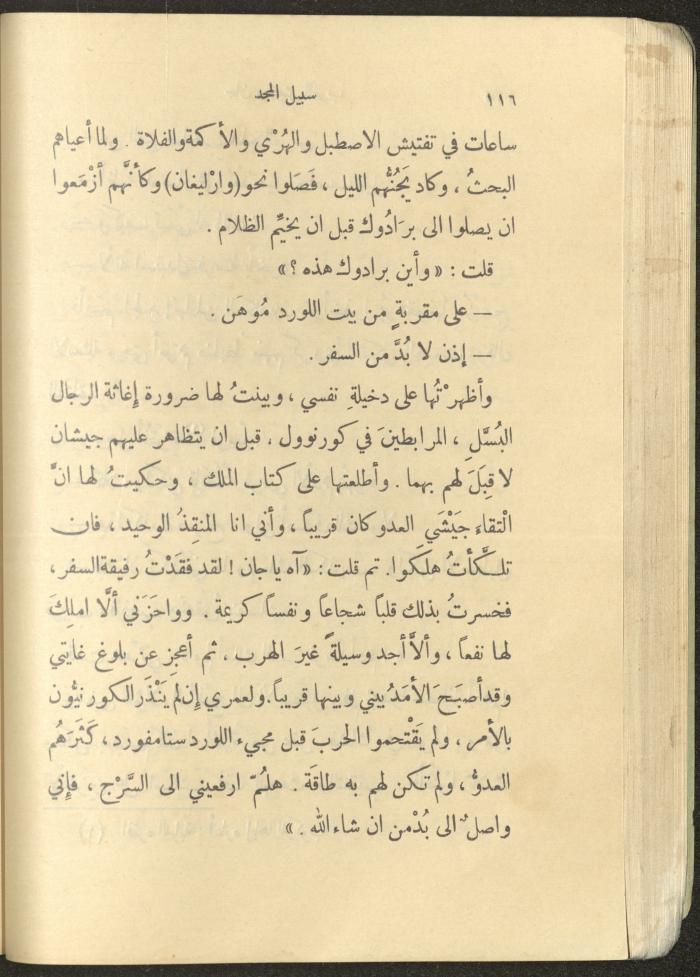 ١١٦ سبيل المجد
ساعات في تفتيش الاصطبل والهُرْي والأكمة والفلاة . ولما أعياهم
البحثُ ، وكاد يَجُنُّهم الليل ، فَصَلوا نحو (وارْليغان) وكأنَّهم أزْمَعوا
ان يصلوا الى برَادُوك قبل ان يخيِّم الظلام .
قلت : « وأين برادوك هذه ؟ »
— على مقربةٍ من بيت اللورد مُوهَن .
— إذن لا بُدَّ من السفر .
وأظهرْتُها على دخيلةِ نفسي ، وبينتُ لها ضرورة إِغاثة الرجال
البُسَّلِ ، المرابطينَ في كورنوول ، قبل ان يتظاهر عليهم جيشان
لا قِبَلَ لهم بهما . وأطلعتها على كتاب الملك ، وحكيتُ لها انَّ
الْتقاءَ جَيْشَي العدو كان قريباً ، وأني انا المنقِذُ الوحيد ، فان
تلكَّأتُ هلَكوا . تم قلت : « آه يا جان ! لقد فقَدْتُ رفيقة السفر ،
فخسرتُ بذلك قلباً شجاعاً ونفساً كريمة . وواحَزَني ألَّا املِكَ
لها نفعاً ، وألاَّ أجد وسيلةً غيرَ الهرب ، ثم أعجِز عن بلوغ غايتي
وقد أصبَحَ الأمَدُ بيني وبينها قريباً . ولعمري إِن لم يَنْذَر الكورنيُّون
بالأمر ، ولم يَقْتحموا الحربَ قبل مجيء اللورد ستامفورد ، كَثَرَهُم
العدوُّ ، ولم تكن لهم به طاقَة . هلُمّ ارفعيني الى السَّرْج ، فإِني
واصلٌ الى بُدْمن ان شاء الله . »